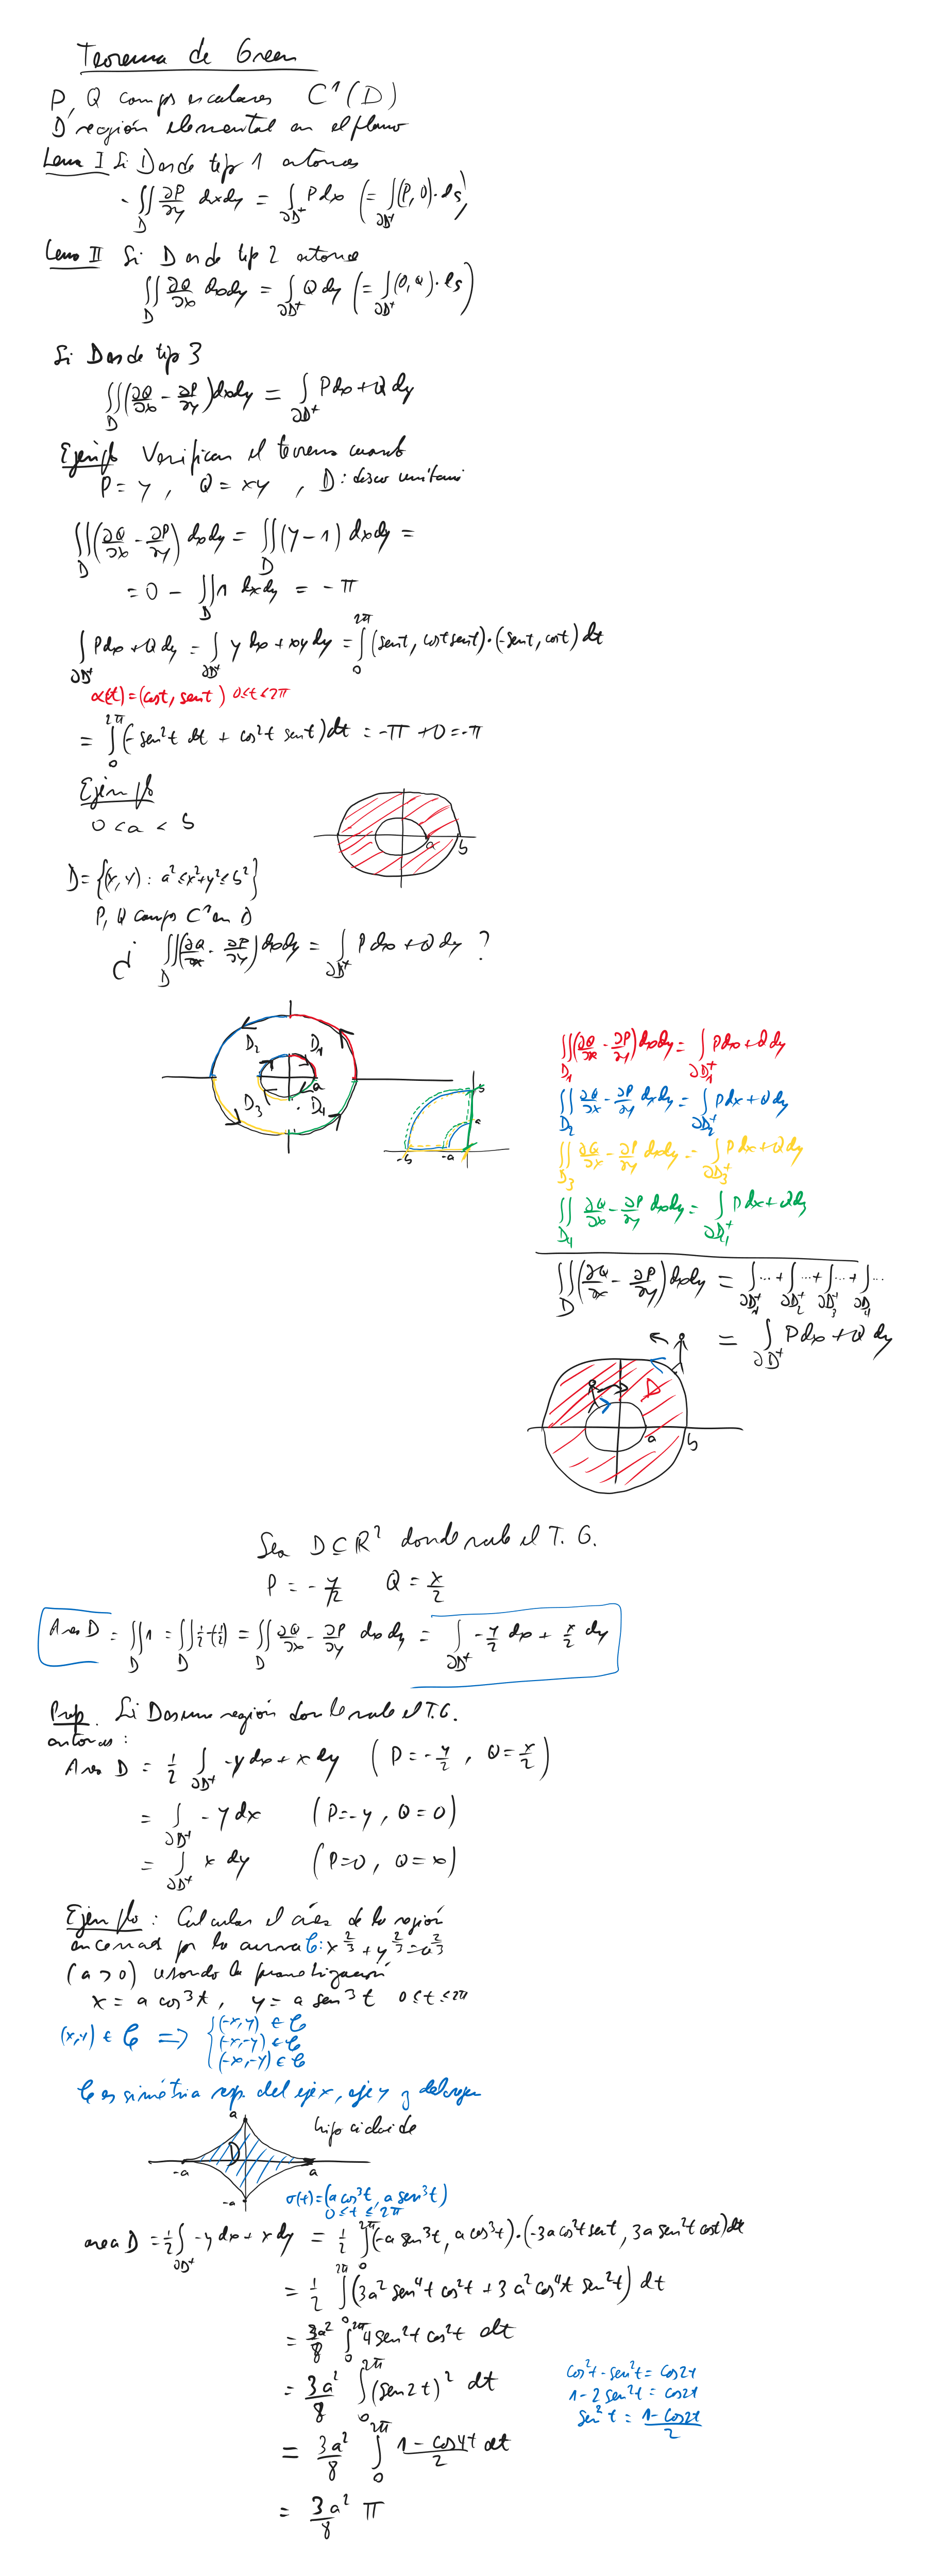 Teorema de Green
P, Q campos escalares C¹(D)
D región elemental en el plano
Lema I Si D es de tip 1 entonces
- ∬_D ∂P/∂y dxdy = ∫_∂D⁺ P dx (= ∫_∂D⁺ (P, 0)·ds)
Lema II Si D es de tip 2 entonces
∬_D ∂Q/∂x dxdy = ∫_∂D⁺ Q dy (= ∫_∂D⁺ (0, Q)·ds)
Si D es de tip 3
∬_D (∂Q/∂x - ∂P/∂y) dxdy = ∫_∂D⁺ P dx + Q dy
Ejemplo Verificar el teorema cuando
P = y , Q = xy , D: disco unitario
∬_D (∂Q/∂x - ∂P/∂y) dxdy = ∬_D (y - 1) dxdy =
= 0 - ∬_D 1 dxdy = - π
∫_∂D⁺ P dx + Q dy = ∫_∂D⁺ y dx + xy dy = ∫_0^2π (sent, cost sent)·(-sent, cost) dt
α(t) = (cost, sent) 0≤t≤2π
= ∫_0^2π (-sen²t dt + cos²t sent) dt = -π + 0 = -π
Ejemplo
0 < a < b
a b
D = {(x, y) : a² ≤ x²+y² ≤ b²}
P, Q campos C¹ en D
¿ ∬_D (∂Q/∂x - ∂P/∂y) dxdy = ∫_∂D⁺ P dx + Q dy ?
D₂ D₁
a
D₃ D₄
b
a
-b -a
∬_D₁ (∂Q/∂x - ∂P/∂y) dxdy = ∫_∂D₁⁺ P dx + Q dy
∬_D₂ ∂Q/∂x - ∂P/∂y dxdy = ∫_∂D₂⁺ P dx + Q dy
∬_D₃ ∂Q/∂x - ∂P/∂y dxdy = ∫_∂D₃⁺ P dx + Q dy
∬_D₄ ∂Q/∂x - ∂P/∂y dxdy = ∫_∂D₄⁺ P dx + Q dy
∬_D (∂Q/∂x - ∂P/∂y) dxdy = ∫_∂D₁⁺ ... + ∫_∂D₂⁺ ... + ∫_∂D₃⁺ ... + ∫_∂D₄ ...
= ∫_∂D⁺ P dx + Q dy
D
a b
Sea D ⊆ ℝ² donde vale el T. G.
P = - y/2 Q = x/2
Area D = ∬_D 1 = ∬_D ½-(-½) = ∬_D ∂Q/∂x - ∂P/∂y dxdy = ∫_∂D⁺ -y/2 dx + x/2 dy
Prop. Si D es una región donde vale el T.G.
entonces :
Area D = ½ ∫_∂D⁺ -y dx + x dy (P = -y/2 , Q = x/2)
= ∫_∂D⁺ - y dx (P = -y , Q = 0)
= ∫_∂D⁺ x dy (P = 0 , Q = x)
Ejemplo : Calcular el área de la región
encerrada por la curva C: x^2/3 + y^2/3 = a^2/3
(a > 0) usando la parametrización
x = a cos³t , y = a sen³t 0≤t≤2π
(x,y) ∈ C ⇒ { (-x,y) ∈ C
(x,-y) ∈ C
(-x,-y) ∈ C
C es simétrica resp. del eje x, eje y y del origen
a hipocicloide
D
-a a
-a
σ(t) = (a cos³t, a sen³t)
0 ≤ t ≤ 2π
area D = ½ ∫_∂D⁺ -y dx + x dy = ½ ∫_0^2π (-a sen³t, a cos³t)·(-3a cos²t sent, 3a sen²t cost) dt
= ½ ∫_0^2π (3a² sen⁴t cos²t + 3a² cos⁴t sen²t) dt
= 3a²/8 ∫_0^2π 4 sen²t cos²t dt
= 3a²/8 ∫_0^2π (sen2t)² dt
cos²t - sen²t = cos2t
1 - 2 sen²t = cos2t
sen²t = (1 - cos2t)/2
= 3a²/8 ∫_0^2π (1 - cos4t)/2 dt
= 3a²/8 π